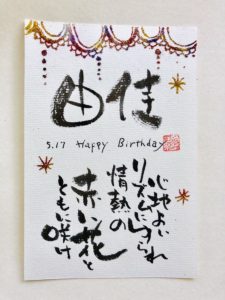 由佳
5.17 Happy Birthday
心地よい
リズムにゆられ
情熱の
赤い花と
ともに咲け